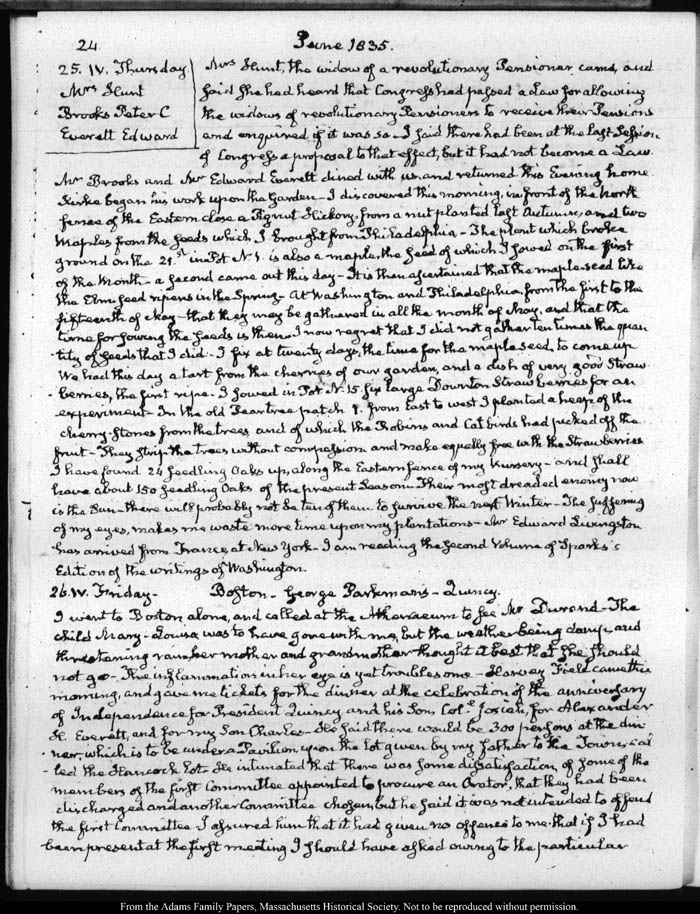 24
June 1835.
25. IV. Thursday
Mrs Hunt
Brooks Peter C
Everett Edward
Mrs Hunt, the widow of a revolutionary Pensioner came, and
said she had heard that Congress had passed a Law for allowing
the widows of revolutionary Pensioners to receive their Pensions
and enquired if it was so. I said there had been at the last Session
of Congress a proposal to that effect, but it had not become a Law.
Mr Brooks and Mr Edward Everett dined with us and returned this Evening home
began his work upon the Garden - I discovered this morning, in front of the North
fence of the Eastern close a Pignut Hickory, from a nut planted last Autumn, and two
Maples from the seeds which I brought from Philadelphia - The plant which broke
ground on the 21st in Pot N 1. is also a maple, the seed of which I sowed on the first
of the Month - a second came out this day - It is then ascertained that the maple-seed like
the Elm seed ripens in the Spring - At Washington and Philadelphia from the first to the
fifteenth of May - that they may be gathered in all the month of May, and that the
time for sowing the seeds is then - I now regret that I did not gather ten times the quan
tity of seeds that I did - I fix at twenty days, the time for the maple seed, to come up
We had this day a tart from the cherries of our garden, and a dish of very good Straw
-berries, the first ripe - I sowed in Pot N. 15. six large Downton Strawberries for an
experiment - In the old Peartree patch 9. from East to west I planted a heap of the
cherry-stones from the trees, and of which the Robins and Cat birds had picked off the
fruit - They strip the trees without compassion and make equally free with the Strawberries
I have found 24 seedling Oaks up, along the Eastern fence of my Nursery - and shall
have about 150 seedling Oaks of the present Season - Their most dreaded enemy now
is the Sun - there will probably not be ten of them to survive the next Winter - The suffering
of my eyes, makes me waste more time upon my plantations - Mr Edward Livingston
has arrived from France, at New York - I am reading the second Volume of Sparks's
Edition of the writings of Washington.
26. IV. Friday - Boston - George Parkman's - Quincy.
I went to Boston alone, and called at the Athenaeum to see Mr Durand - The
child Mary-Louisa was to have gone with me, but the weather being damp and
threatening rain her mother and grandmother thought it best that she should
not go - The inflammation in her eye is yet troublesome - Harvey Field came this
morning, and gave me tickets for the dinner at the celebration of the anniversary
of Independence for President Quincy and his Son, Coll. Josiah, for Alexander
H. Everett, and for my Son Charles - He said there would be 300 persons at the din
-ner, which is to be under a Pavilion, upon the lot given by my father to the Town, cal
led the Hancock Lot - He intimated that there was some dissatisfaction, of some of the
members of the first Committee appointed to procure an Orator, that they had been
discharged and another Committee chosen, but he said it was not intended to offend
the first Committee I assured him that it had given no offence to me. that if I had
been present at the first meeting I should have asked owing to the particular
From the Adams Family Papers, Massachusetts Historical Society. Not to be reproduced without permission.